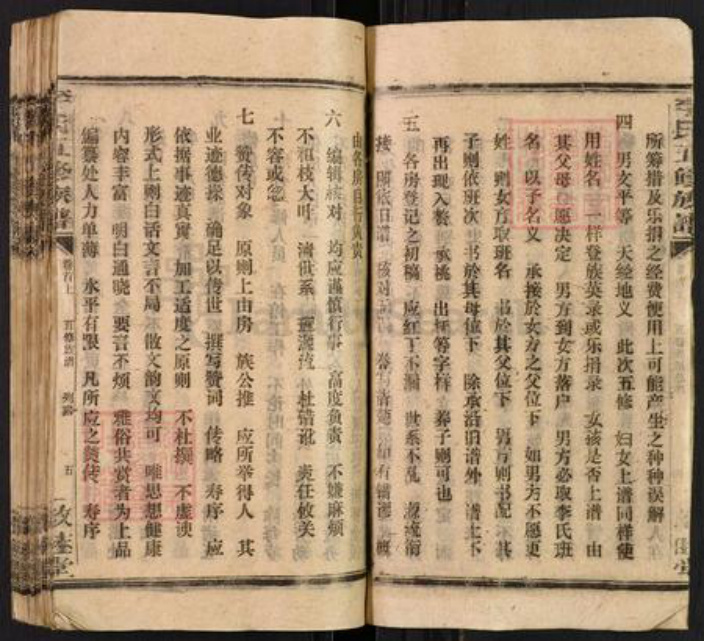 所筹措及乐捐之经费使用上可能产生之种种误解
四 男女平等 天经地义 此次五修 妇女上谱同样使
用姓名 一样登族英录或乐捐录 女孩是否上谱 由
其父母自愿决定 男方到女方落户 男方必取李氏班
名 以子名义 承接於女方之父位下 如男方不愿更
姓 则女方取班名 书於其父位下 男方则书配 其
子则依班次 书於其母位下 除承沿旧谱外 谱上不
再出现入赘 承祧 出抚等字样 养子则可也
五 各房登记之初稿 应红丁不漏 世系不乱 源流衔
接
由各房自行负责
六 编辑核对 均应谨慎行事 高度负责 不嫌麻烦
不粗枝大叶 溯世系 杜错讹 责任攸关
不容或忽
七 赞传对象 原则上由房 族公推 应所举得人 其
业迹德操 确足以传世 撰写赞词 传略 寿序 应
依据事迹真实 加工适度之原则 不杜撰 不虚谀
形式上则白话文言不局 散文韵文均可 唯思想健康
内容丰富 明白通晓 要言不烦 雅俗共赏者为上品
编纂处人力单薄 水平有限 凡所应之赞传 寿序
李氏五修族谱
卷首上
五修族谱
五
敦睦堂